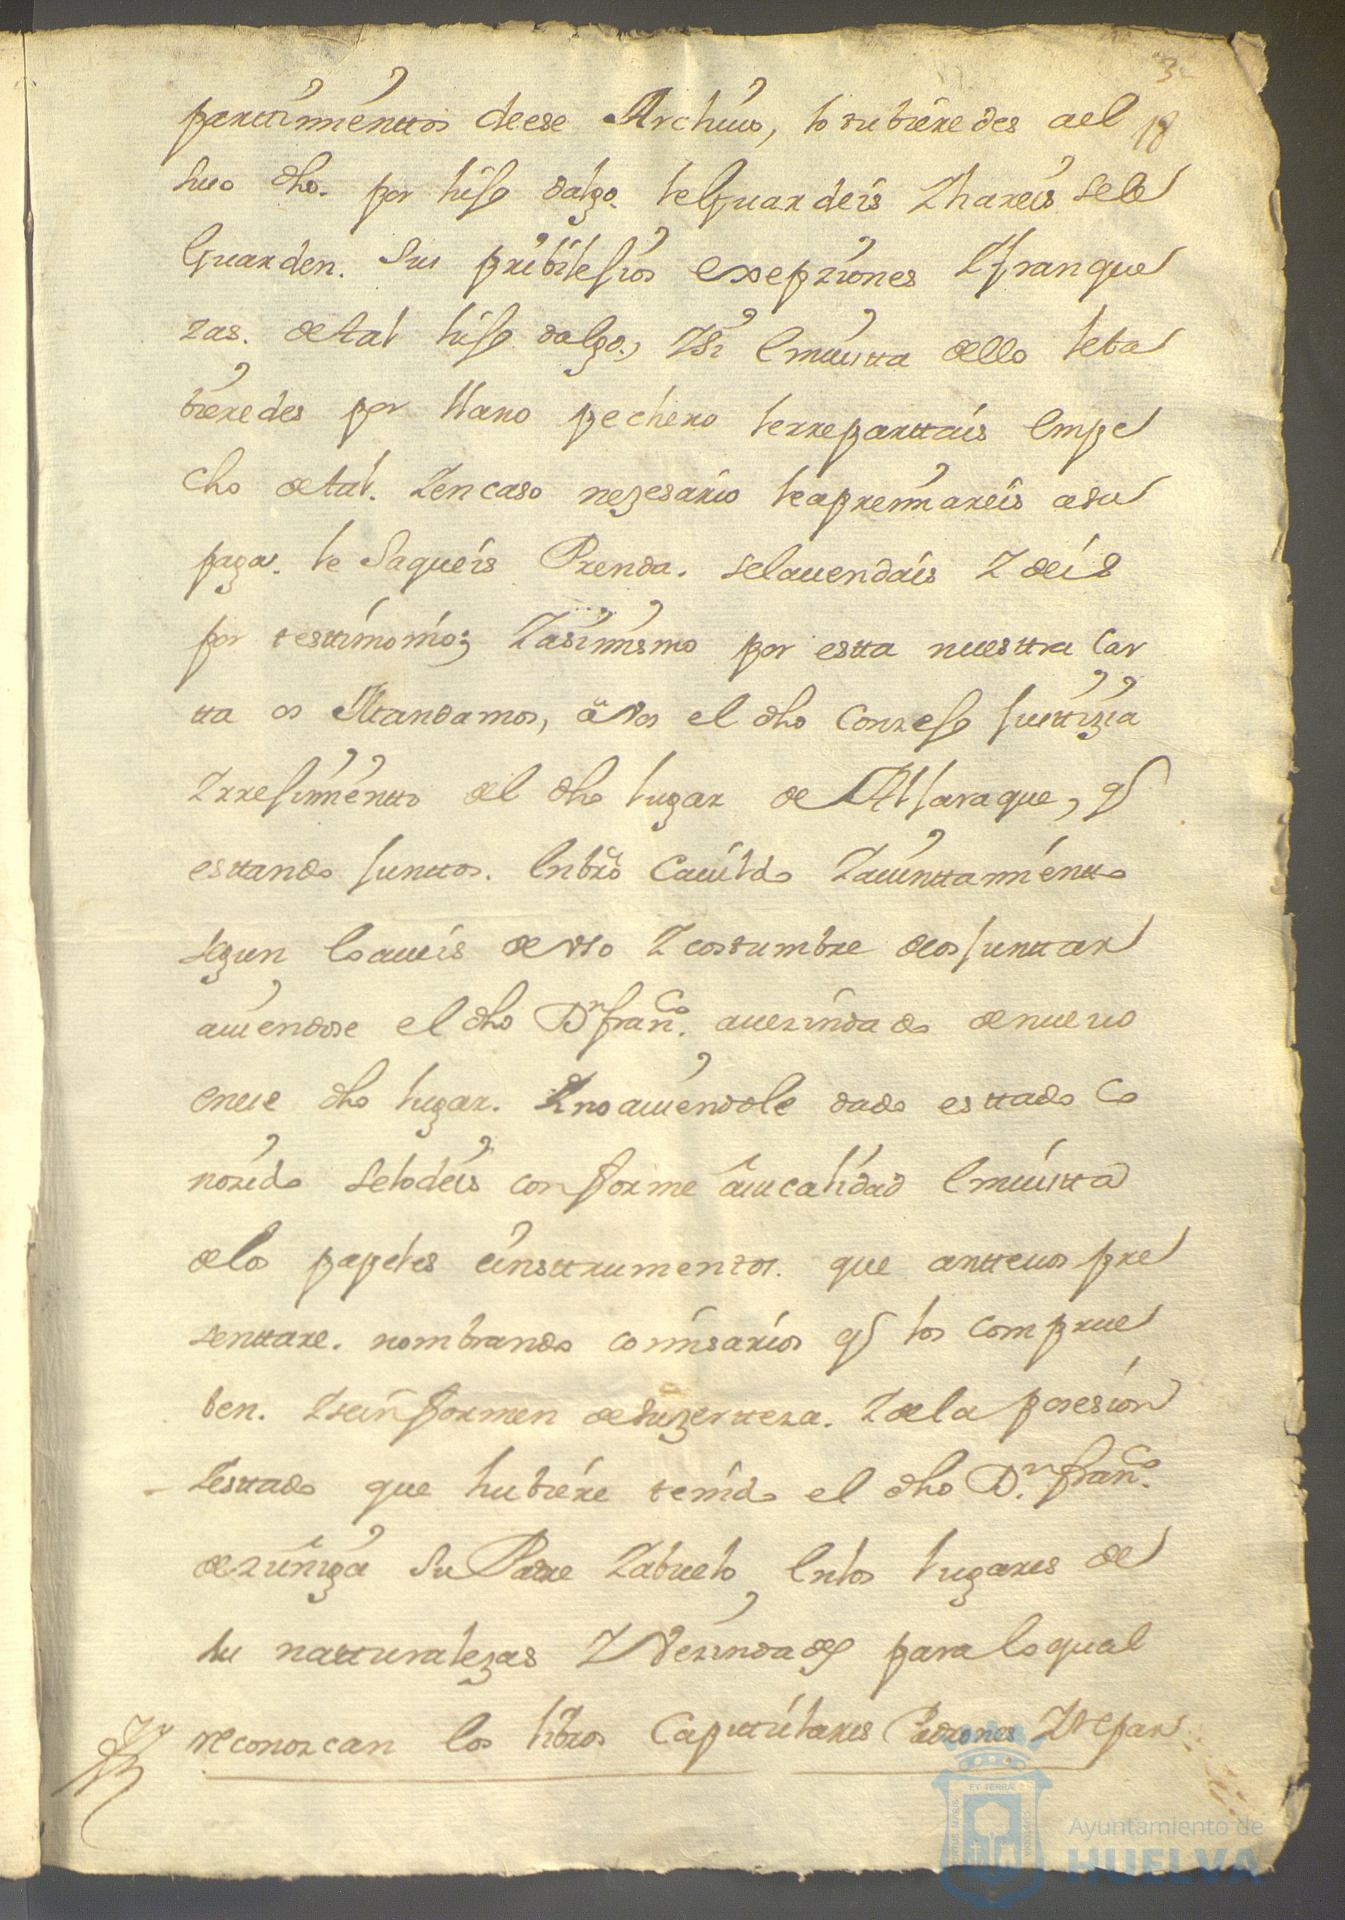 3
18
parttimienttos de ese Archiuo, lo tubieredes a el
suo dho. por hijo dalgo. le Guardeis Y hareis se le
Guarden. Sus pribilejios exepziones Y franque
zas. de tal hijo dalgo, Y Si En uistta de ello le ta
bieredes por llano pechero le rreparttais En pe
cho de tal. Y en caso nezesario le apremiareis a su
paga. le Saqueis Prenda. se la uendais Y deis
por testtimonio; Y asimismo por estta nuesttra Car
tta os Mandamos, a Vos el dho Conzejo Justtizia
Y rrejimientto del dho lugar de Aljaraque, q
esttando junttos. En bro Cauildo Y aiunttamientto
segun lo aueis de Vso Y costumbre de os junttar
auiendose el dho Dn. franco. auezindado de nueuo
en ese dho lugar. Y no auiendole dado esttado Co
nozido se lo deis conforme a su calidad En uistta
de los papeles e instrumentos. que antte uos pre
senttare. nombrando comisarios q los comprue
ben. Y se informen de su zertteza. Y de la posesion
Y esttado que hubiere tenido el dho Dn. franco.
de zuñiga Su Padre Y abuelo, En los lugares de
su natturalezas Y Vezindades para lo qual
reconozcan los libros Capitulares Padrones Y Repar
Ayuntamiento de
HUELVA